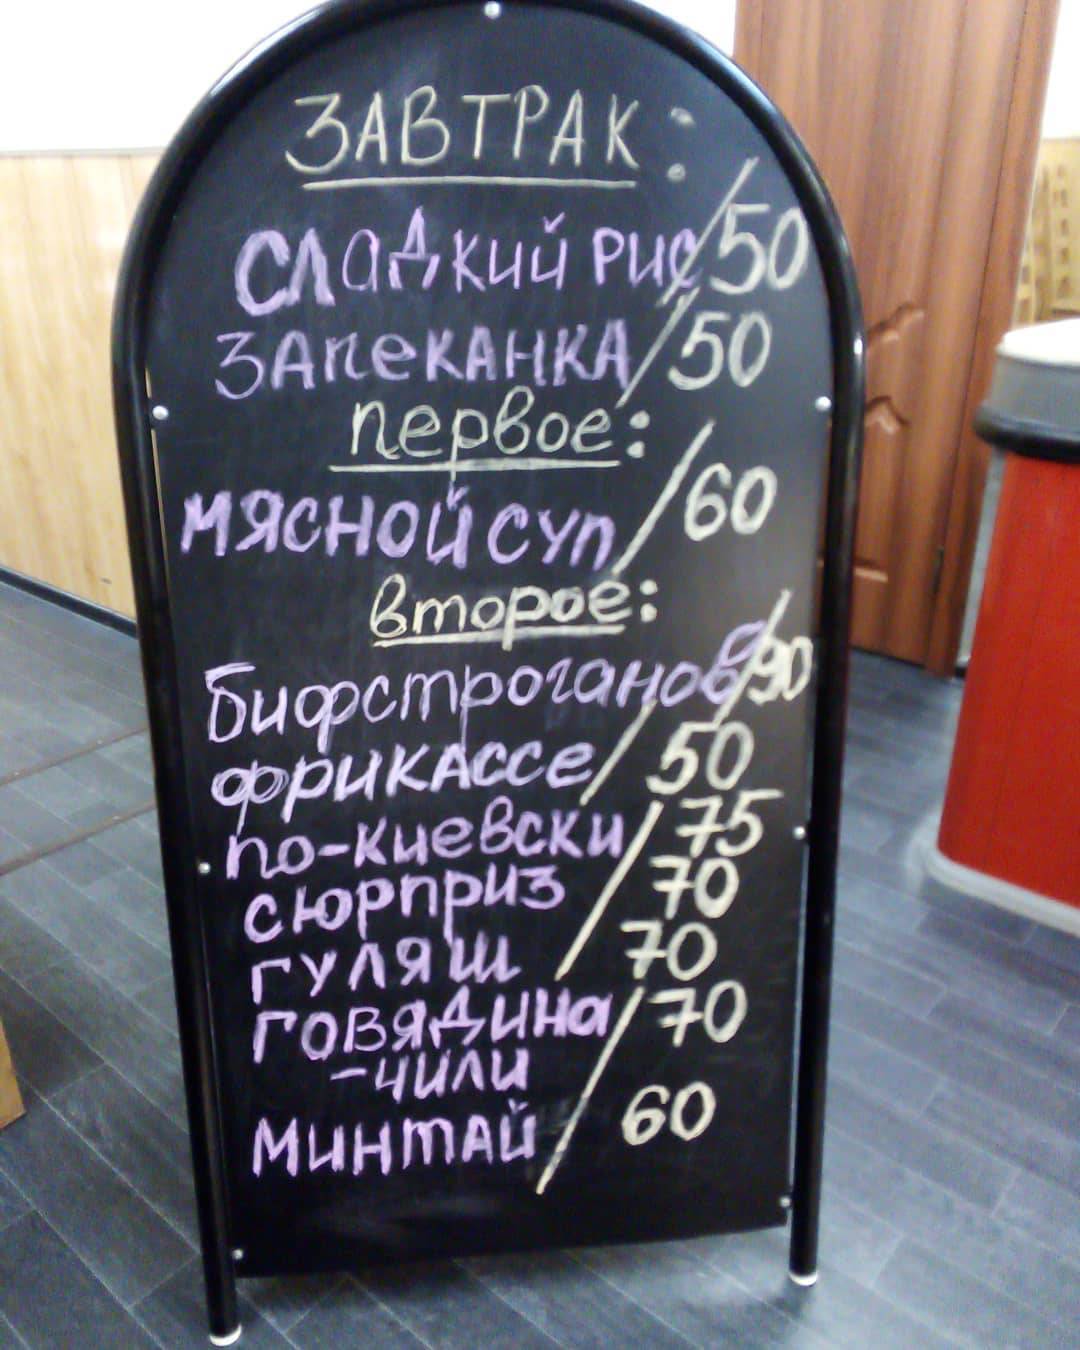 ЗАВТРАК:
СЛАДКИЙ РИС/50
ЗАПЕКАНКА/50
первое:
МЯСНОЙ СУП/60
второе:
бифстроганов/90
фрикассе/50
по-киевски/75
сюрприз/70
гуляш/70
говядина/70
-чили
минтай/60